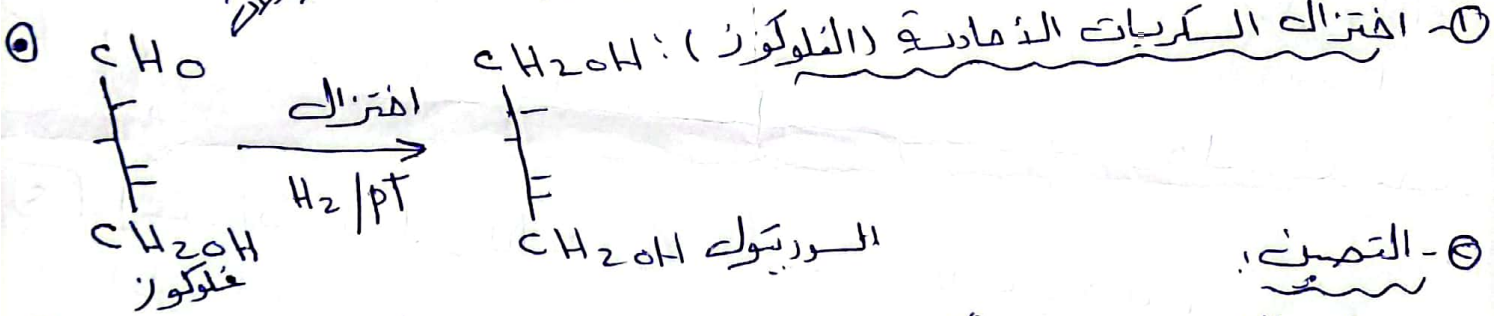 ①- اختزال السكريات الأحادية (الغلوكوز):
CHO
CH2OH
اختزال
H2/pT
CH2OH
غلوكوز
CH2OH السوربتول
②- التصبن: